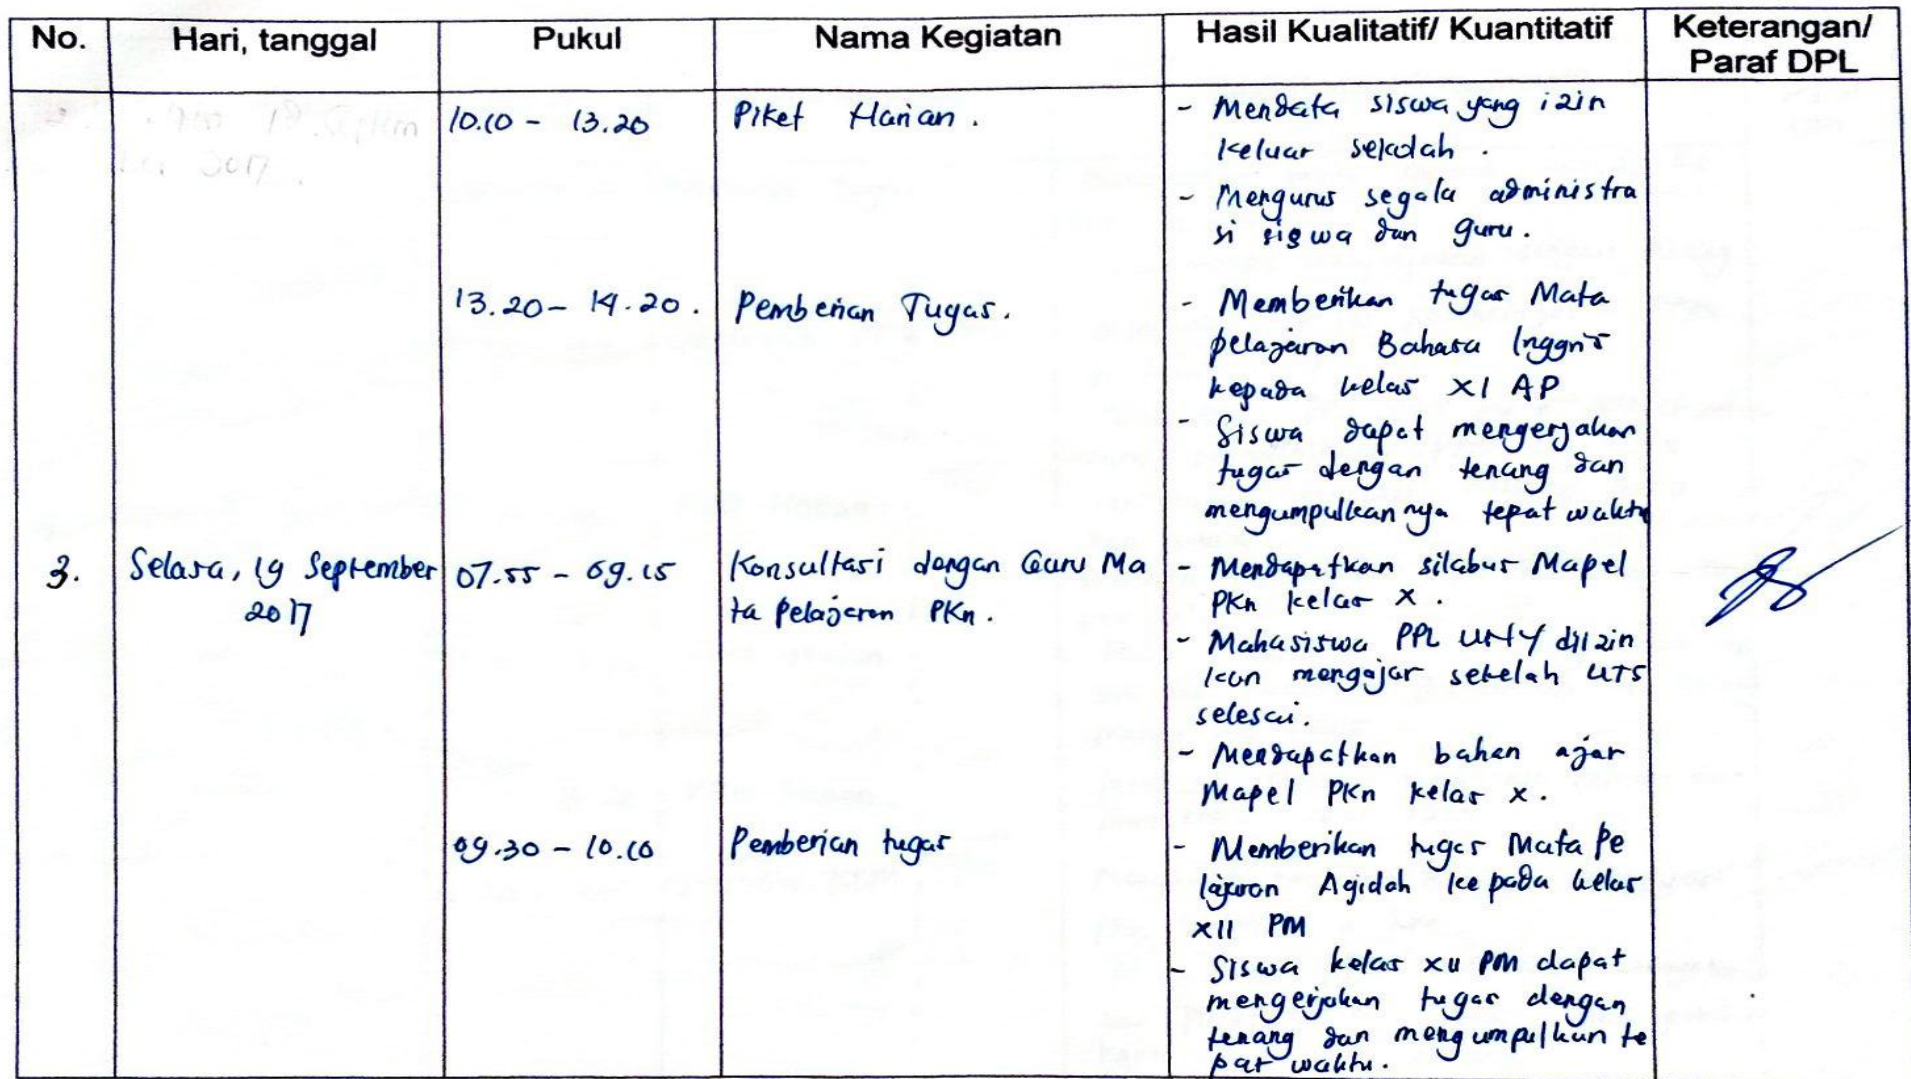 No.
Hari, tanggal
Pukul
Nama Kegiatan
Hasil Kualitatif/ Kuantitatif
Keterangan/
Paraf DPL
10.10 - 13.20
Piket Harian.
- Mendata siswa yang izin
keluar sekolah.
- Mengurus segala administra
si siswa dan guru.
13.20 - 14.20.
Pemberian Tugas.
- Memberikan tugas Mata
pelajaran Bahasa Inggris
kepada kelas XI AP
- Siswa dapat mengerjakan
tugas dengan tenang dan
mengumpulkannya tepat waktu
3.
Selasa, 19 September
2017
07.55 - 09.15
Konsultasi dengan Guru Ma
ta Pelajaran PKn.
- Mendapatkan silabus Mapel
PKn kelas X.
- Mahasiswa PPL UNY diizin
kan mengajar setelah UTS
selesai.
- Mendapatkan bahan ajar
Mapel PKn kelas X.
09.30 - 10.10
Pemberian tugas
- Memberikan tugas Mata Pe
lajaran Aqidah kepada kelas
XII PM
- Siswa kelas XII PM dapat
mengerjakan tugas dengan
tenang dan mengumpulkan te
pat waktu.